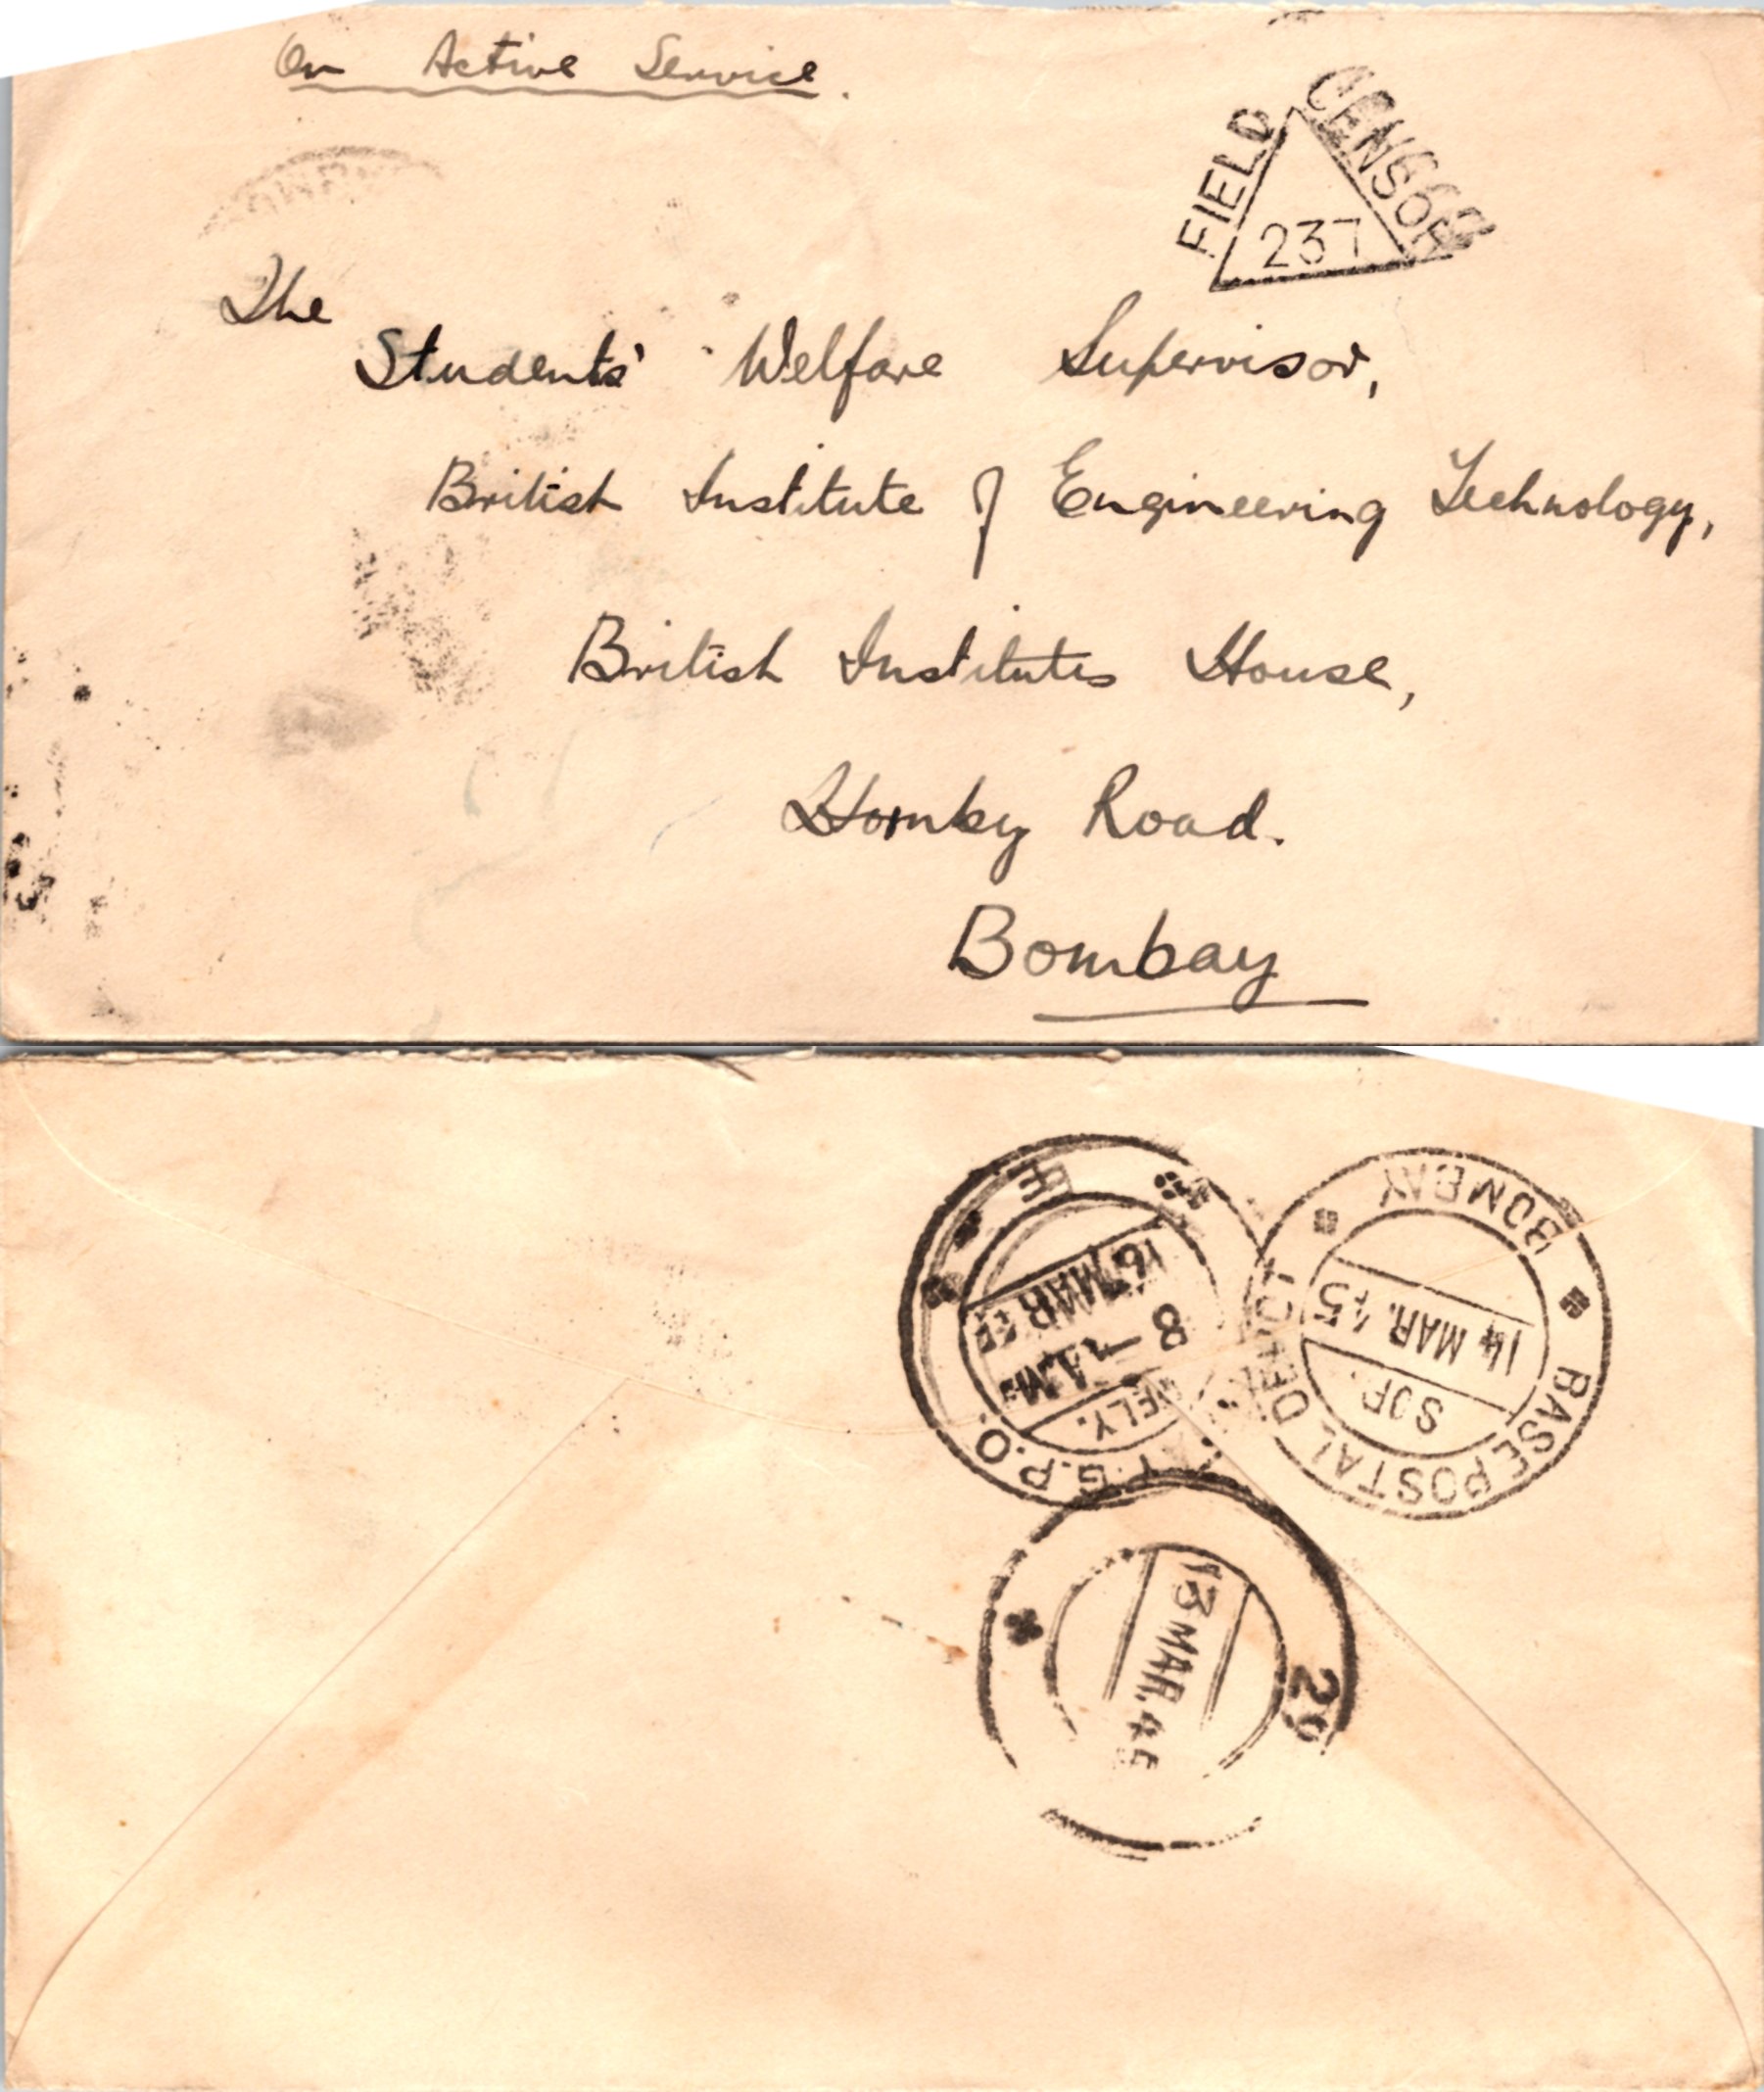 On Active Service.
FIELD CENSOR
237
The
Students' Welfare Supervisor,
British Institute of Engineering Technology,
British Institutes House,
Hornby Road.
Bombay
BOMBAY
14 MAR. 45
BASE POSTAL DEPOT
G.P.O.
8 - A.M.
16 MAR
13 MAR.
29